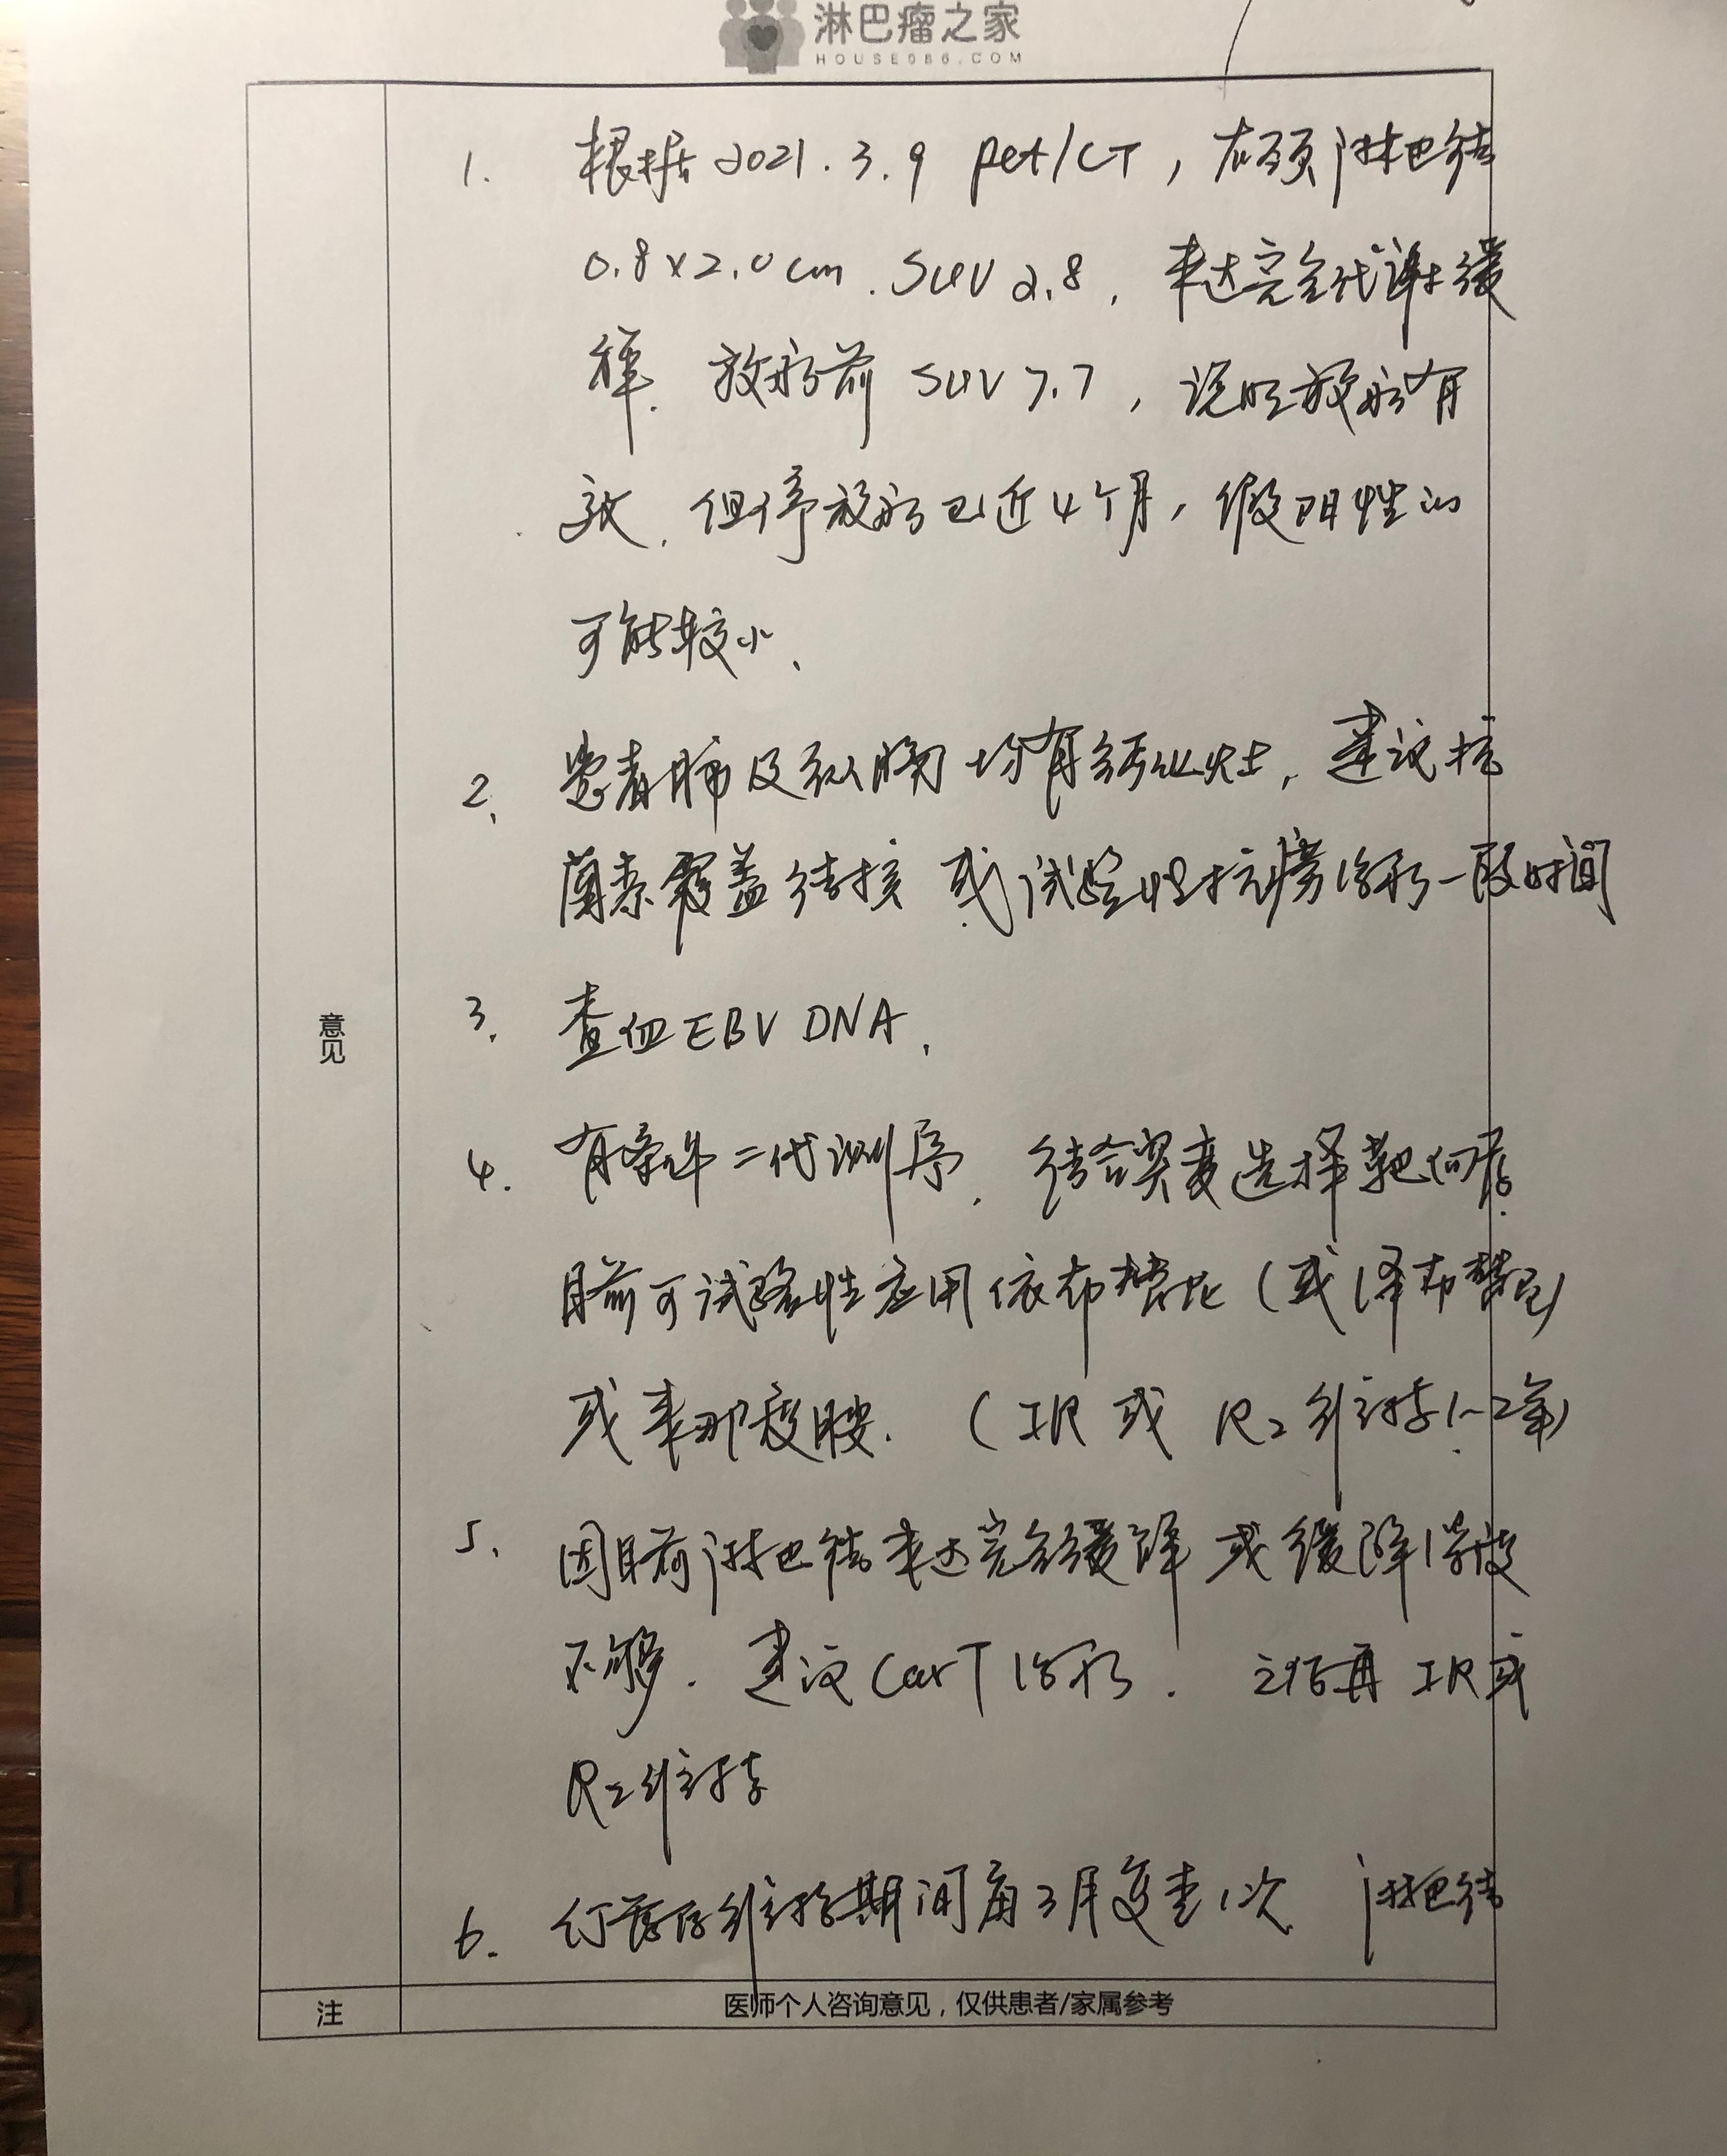 淋巴瘤之家
HOUSE086.COM
1. 根据2021.3.9 pet/CT，右颈淋巴结
0.8×2.0cm. SUV 2.8，未达完全代谢缓
解. 放疗前 SUV 7.7，说明放疗有
效. 但停放疗已近4个月，假阳性的
可能较小.
2. 患者肺及纵膈均有钙化灶，建议
菌素 结核 或试验性抗痨治疗一段时间
3. 查血EBV DNA.
4. 有条件二代测序. 结合突变选择靶向药.
目前可试验性应用依布替尼（或泽布替尼）
或来那度胺.（IR 或 R2 维持1~2年）
5. 因目前淋巴结未达完全缓解 或缓解深度
不够. 建议CarT治疗. 之后再 IR或
R2维持
6. 停药后维持期间每3月复查1次 淋巴结
意见
注
医师个人咨询意见，仅供患者/家属参考